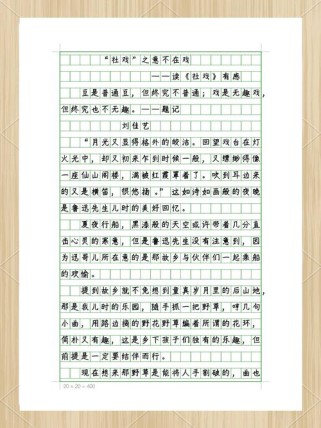 “社戏”之意不在戏
——读《社戏》有感
豆是普通豆，但终究不普通；戏是无趣戏，
但终究也不无趣。——题记
刘佳艺
“月光又显得格外的皎洁。回望戏台在灯
火光中，却又初来乍到时候一般，又缥缈得像
一座仙山楼阁，满被红霞罩着了。吹到耳边来
的又是横笛，很悠扬。”这如诗如画般的夜晚
是鲁迅先生儿时的美好回忆。
夏夜行船，黑漆般的天空或许带着几分直
击心灵的寒意，但是鲁迅先生没有注意到，因
为迅哥儿所在意的是那故乡与伙伴们一起乘船
的欢愉。
提到故乡就不免想到童真岁月里的后山地，
那是我儿时的乐园，随手抓一把野草，哼几句
小曲，用路边摘的野花野草编着所谓的花环，
简朴又有趣，这是乡下孩子们独有的乐趣，但
前提是一定要结伴而行。
现在想来那野草是能将人手割破的，曲也
20×20=400